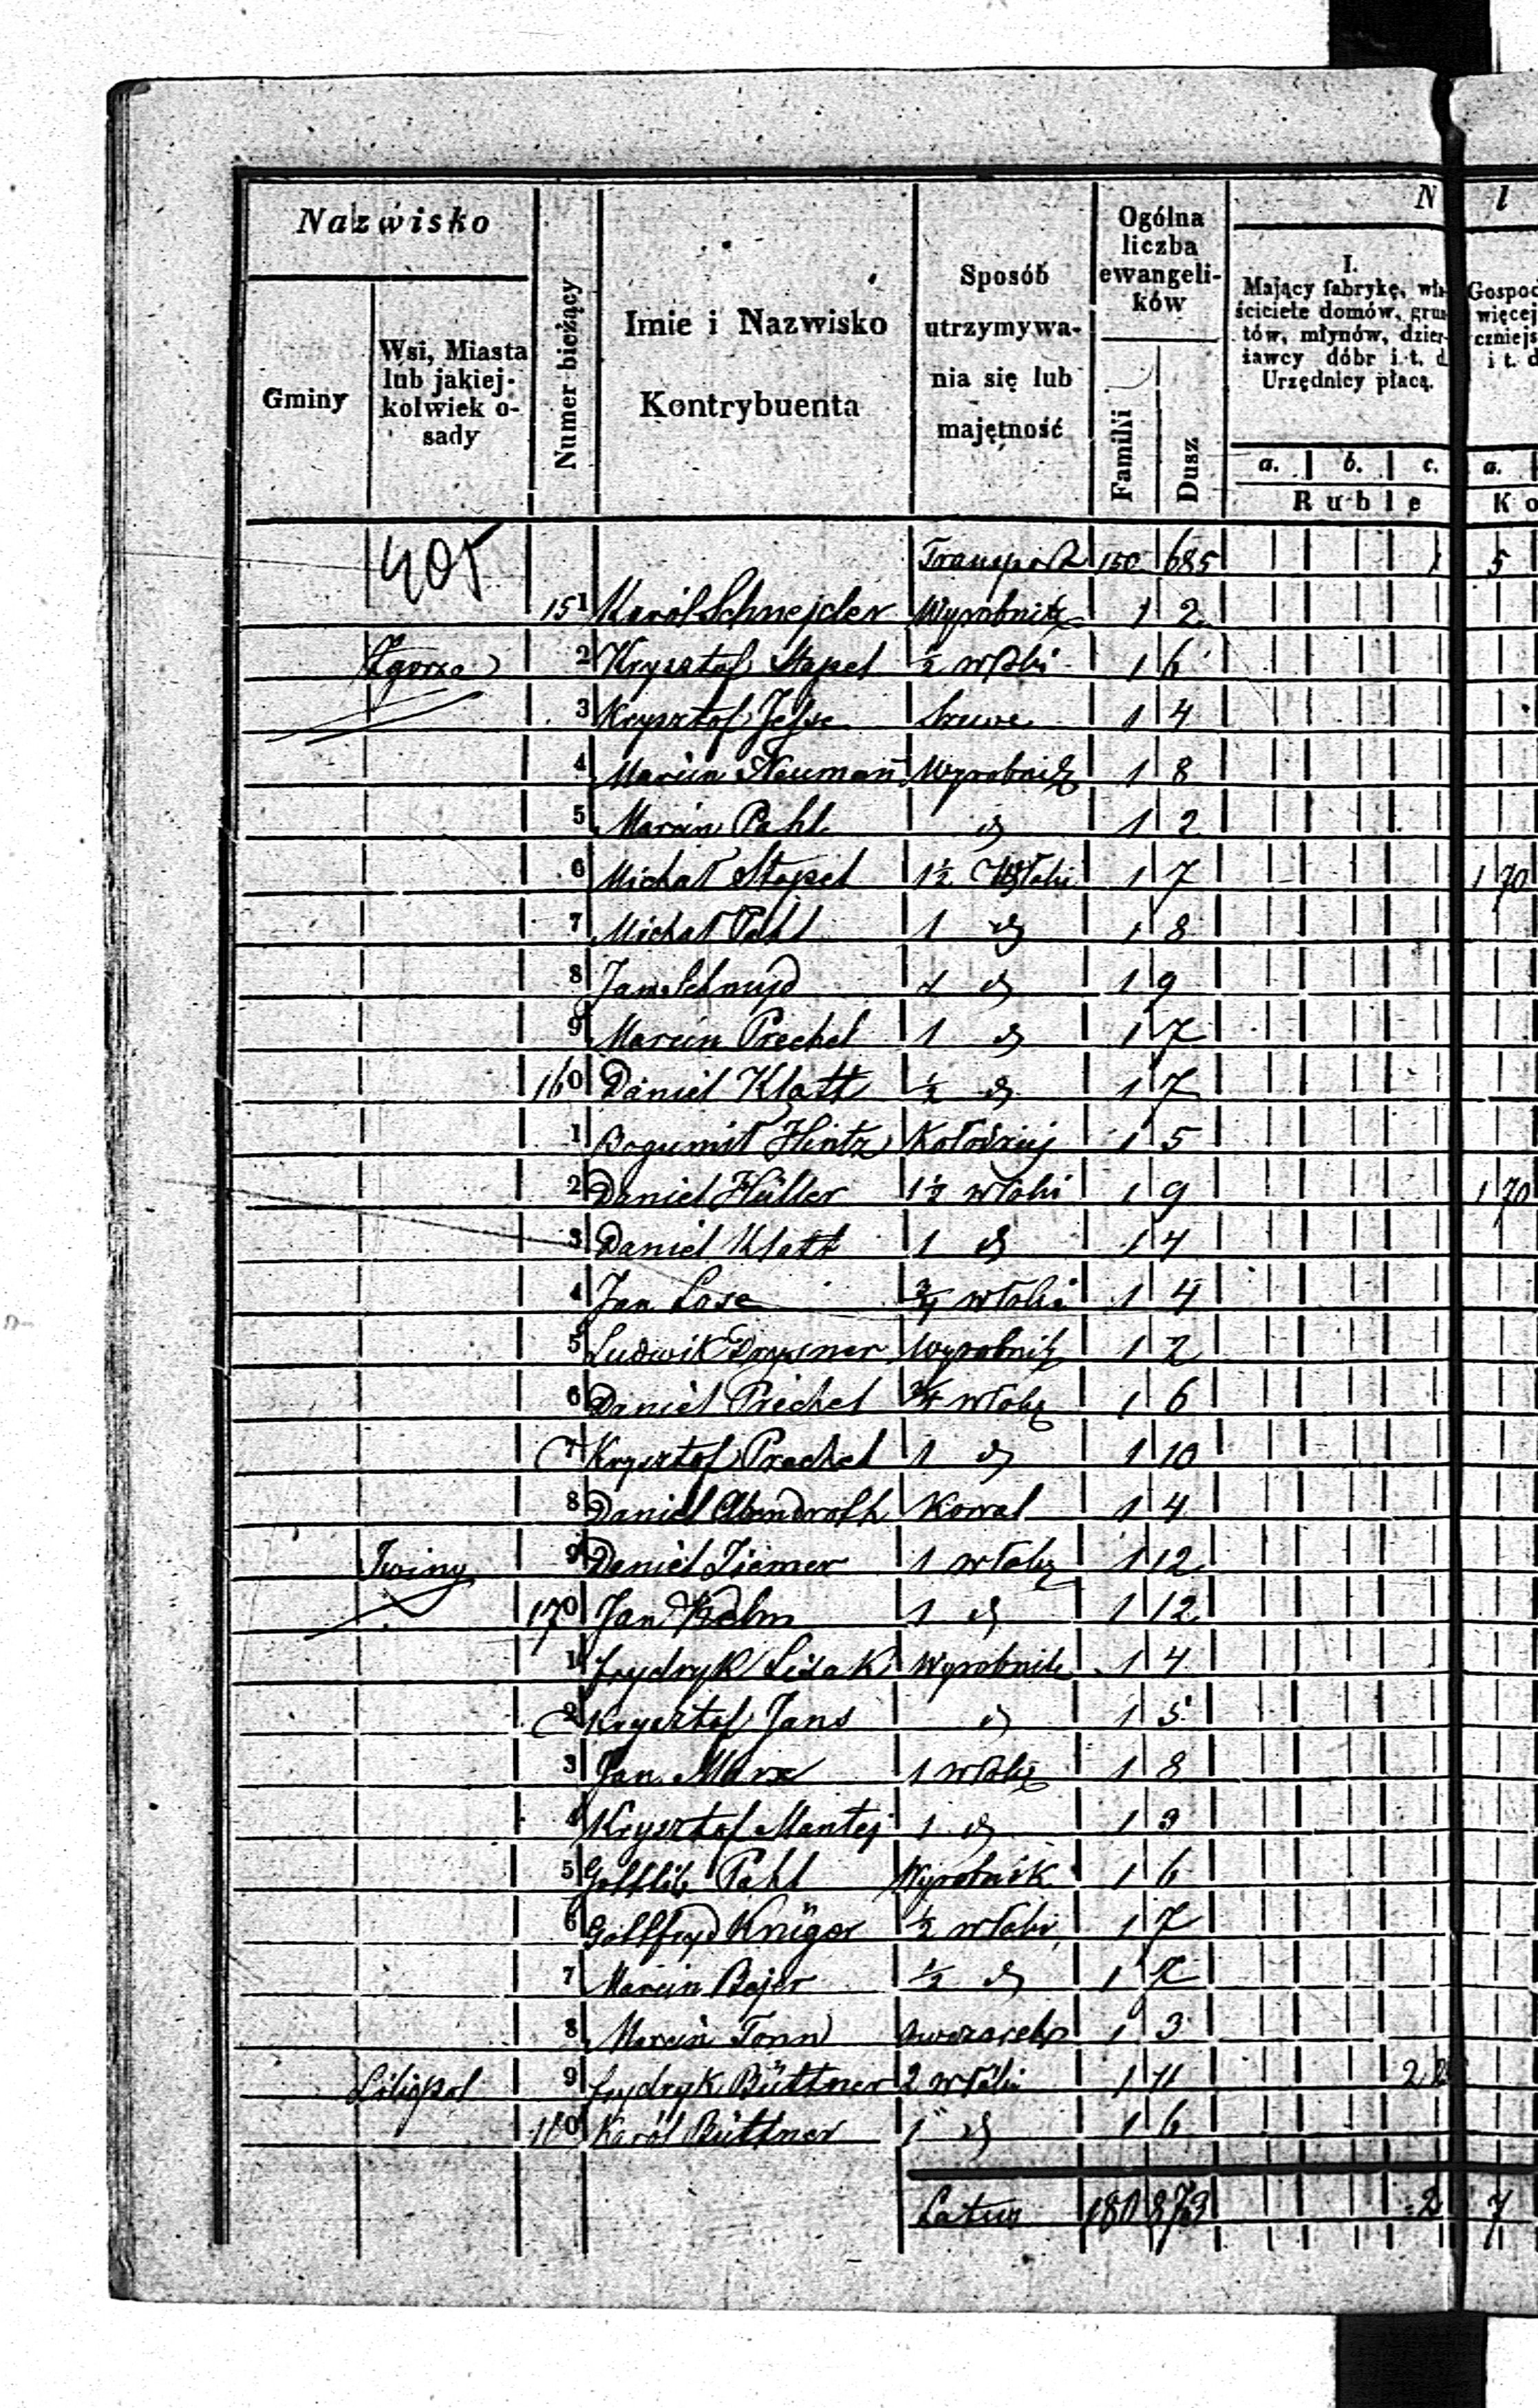 Nazwisko
Gminy
Wsi, Miasta lub jakiej-kolwiek o-sady
Numer bieżący
Imie i Nazwisko Kontrybuenta
Sposób utrzymywa-nia się lub majętność
Ogólna liczba ewangeli-ków
Familii
Dusz
N l
I. Mający fabrykę, wła-ściciele domów, grun-tów, młynów, dzier-żawcy dóbr i t. d. Urzędnicy płacą.
a. b. c.
Ruble
Gospod więcej czniejs i t. d
a.
Ko
405 Transport 150 685 1 5
151 Karól Schnejder Wyrobnik 1 2
Zgorze 2 Krysztof Stapel ½ włoki 1 6
3 Krysztof Jesse Szewc 1 4
4 Marcin Neuman Wyrobnik 1 8
5 Marcin Pahl d 1 2
6 Michał Stapel 1½ Włoki 1 7 1 70
7 Michał Pahl 1 d 1 8
8 Jan Schmyd 1 d 1 9
9 Marcin Prechel 1 d 1 7
160 Daniel Klatt ½ d 1 7
1 Bogumił Hintz Kołodziej 1 5
2 Daniel Hüller 1½ włoki 1 9 1 70
3 Daniel Klatt 1 d 1 4
4 Jan Lose ¾ włoki 1 4
5 Ludwik Wyrobnik 1 2
6 Daniel Prechel ¾ włoki 1 6
7 Krysztof Prechel 1 d 1 10
8 Daniel Abendroth Kowal 1 4
9 Daniel Ziemer 1 włokę 1 12
170 Jan 1 d 1 12
1 Frydryk Lisak Wyrobnik 1 4
2 Krysztof Jans d 1 5
3 Jan Marx 1 włokę 1 8
4 Krysztof Mantej 1 d 1 3
5 Gottlib Pahl Wyrobnik 1 6
6 Gottfryd Krüger ½ włoki 1 7
7 Marcin Bajer ½ d 1 7
8 Marcin Tonn Owczarek 1 3
9 Frydryk Büttner 2 włóki 1 11
180 Karól Büttner 1 d 1 6
Latus 180 873 2 7